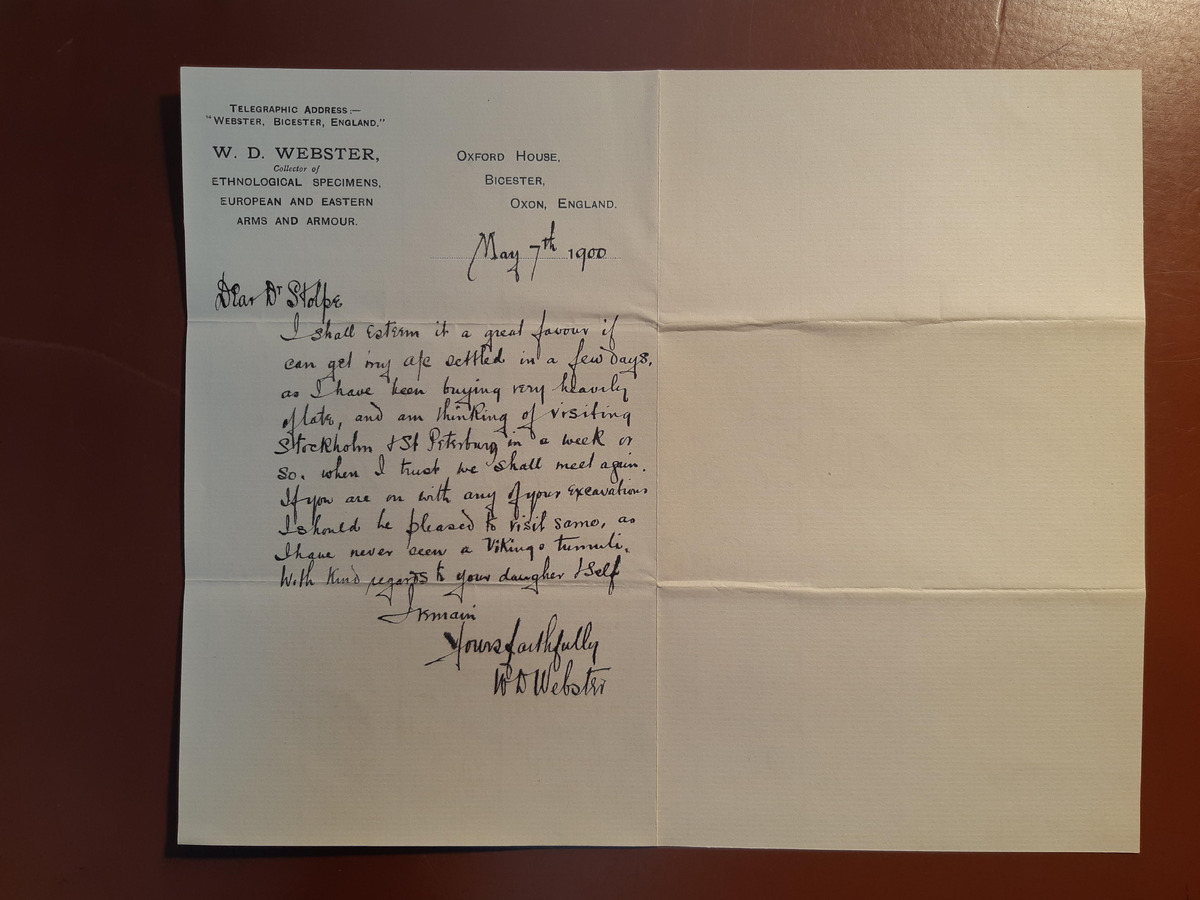 TELEGRAPHIC ADDRESS:—
"WEBSTER, BICESTER, ENGLAND."
W. D. WEBSTER,
Collector of
ETHNOLOGICAL SPECIMENS,
EUROPEAN AND EASTERN
ARMS AND ARMOUR.
OXFORD HOUSE,
BICESTER,
OXON, ENGLAND.
May 7th 1900
Dear Dr Stolpe
I shall esteem it a great favour if
can get my a/c settled in a few days,
as I have been buying very heavily
of late, and am thinking of visiting
Stockholm & St Peterburg in a week or
so. when I trust we shall meet again.
If you are on with any of your excavations
I should be pleased to visit same, as
I have never seen a Vikings tumuli.
With kind regards to your daugher & self
I remain
Yours faithfully
W D Webster